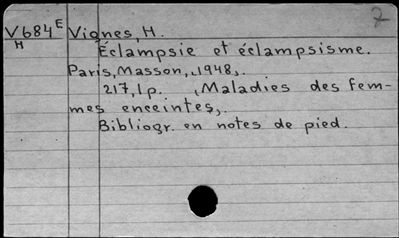 7
V684E Vignes, H.
H Éclampsie et éclampsisme.
Paris, Masson, 1948.
217, 1p. (Maladies des fem-
mes enceintes).
Bibliogr. en notes de pied.